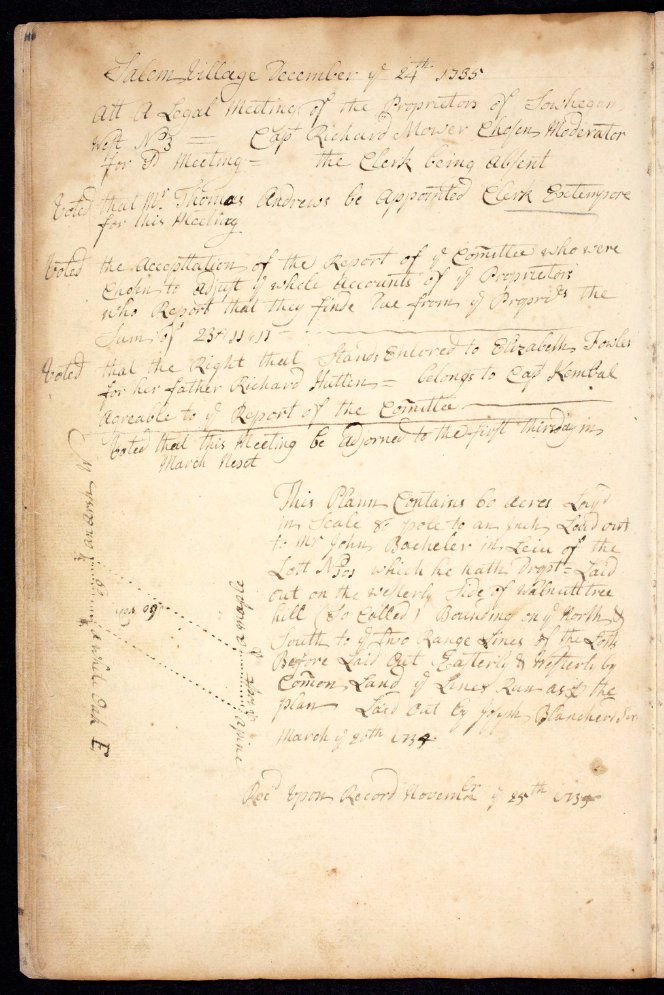 Salem Village December ye 24th 1735
Att A Legal Meeting of the Proprietors of Sowhegan
West No 3 = Capt Richard Mower Chosen Moderator
for sd Meeting = the Clerk being absent
Voted that Mr Thomas Andrews be appointed Clerk Extempore
for this Meeting
Voted the Acceptation of the Report of ye Comittee who were
Chosen to adjust ye whole accounts of ye Proprietors
who Report that they finde Due from ye Propries the
Sum of 23=11=11
Voted that the Right that Stands Entored to Elizabeth Fowles
for her father Richard Hutten = belongs to Capt Kembal
Agreable to ye Report of the Comittee
Voted that this Meeting be adjorned to the first thirsday in
March Next
This Plann Contains 60 acres Lay'd
in Scale 80 pole to an Inch Laid out
to Mr John Bacheler in Leiu of the
Lott No which he hath Dropt = Laid
out on the westerly Side of Walnutt tree
hill (So Called) Bounding on ye North &
South to ye two Range Lines of the Lotts
Before Laid Out Easterly & Westerly by
Comon Land ye Lines Run as the
plan Laid Out by Joseph Blanchard Sur
March ye 20th 1734
Recd Upon Record Novembr ye 25th 1734
a whit Oak E
60
a pine